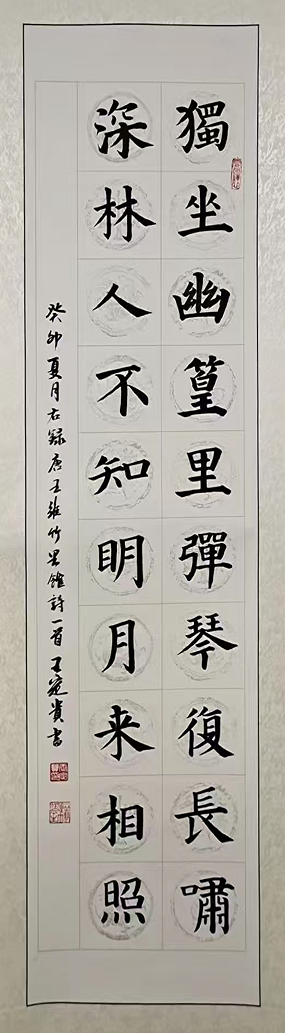 獨坐幽篁里彈琴復長嘯
深林人不知明月来相照
癸卯夏月右録唐王維竹里館詩一首王宛貴書